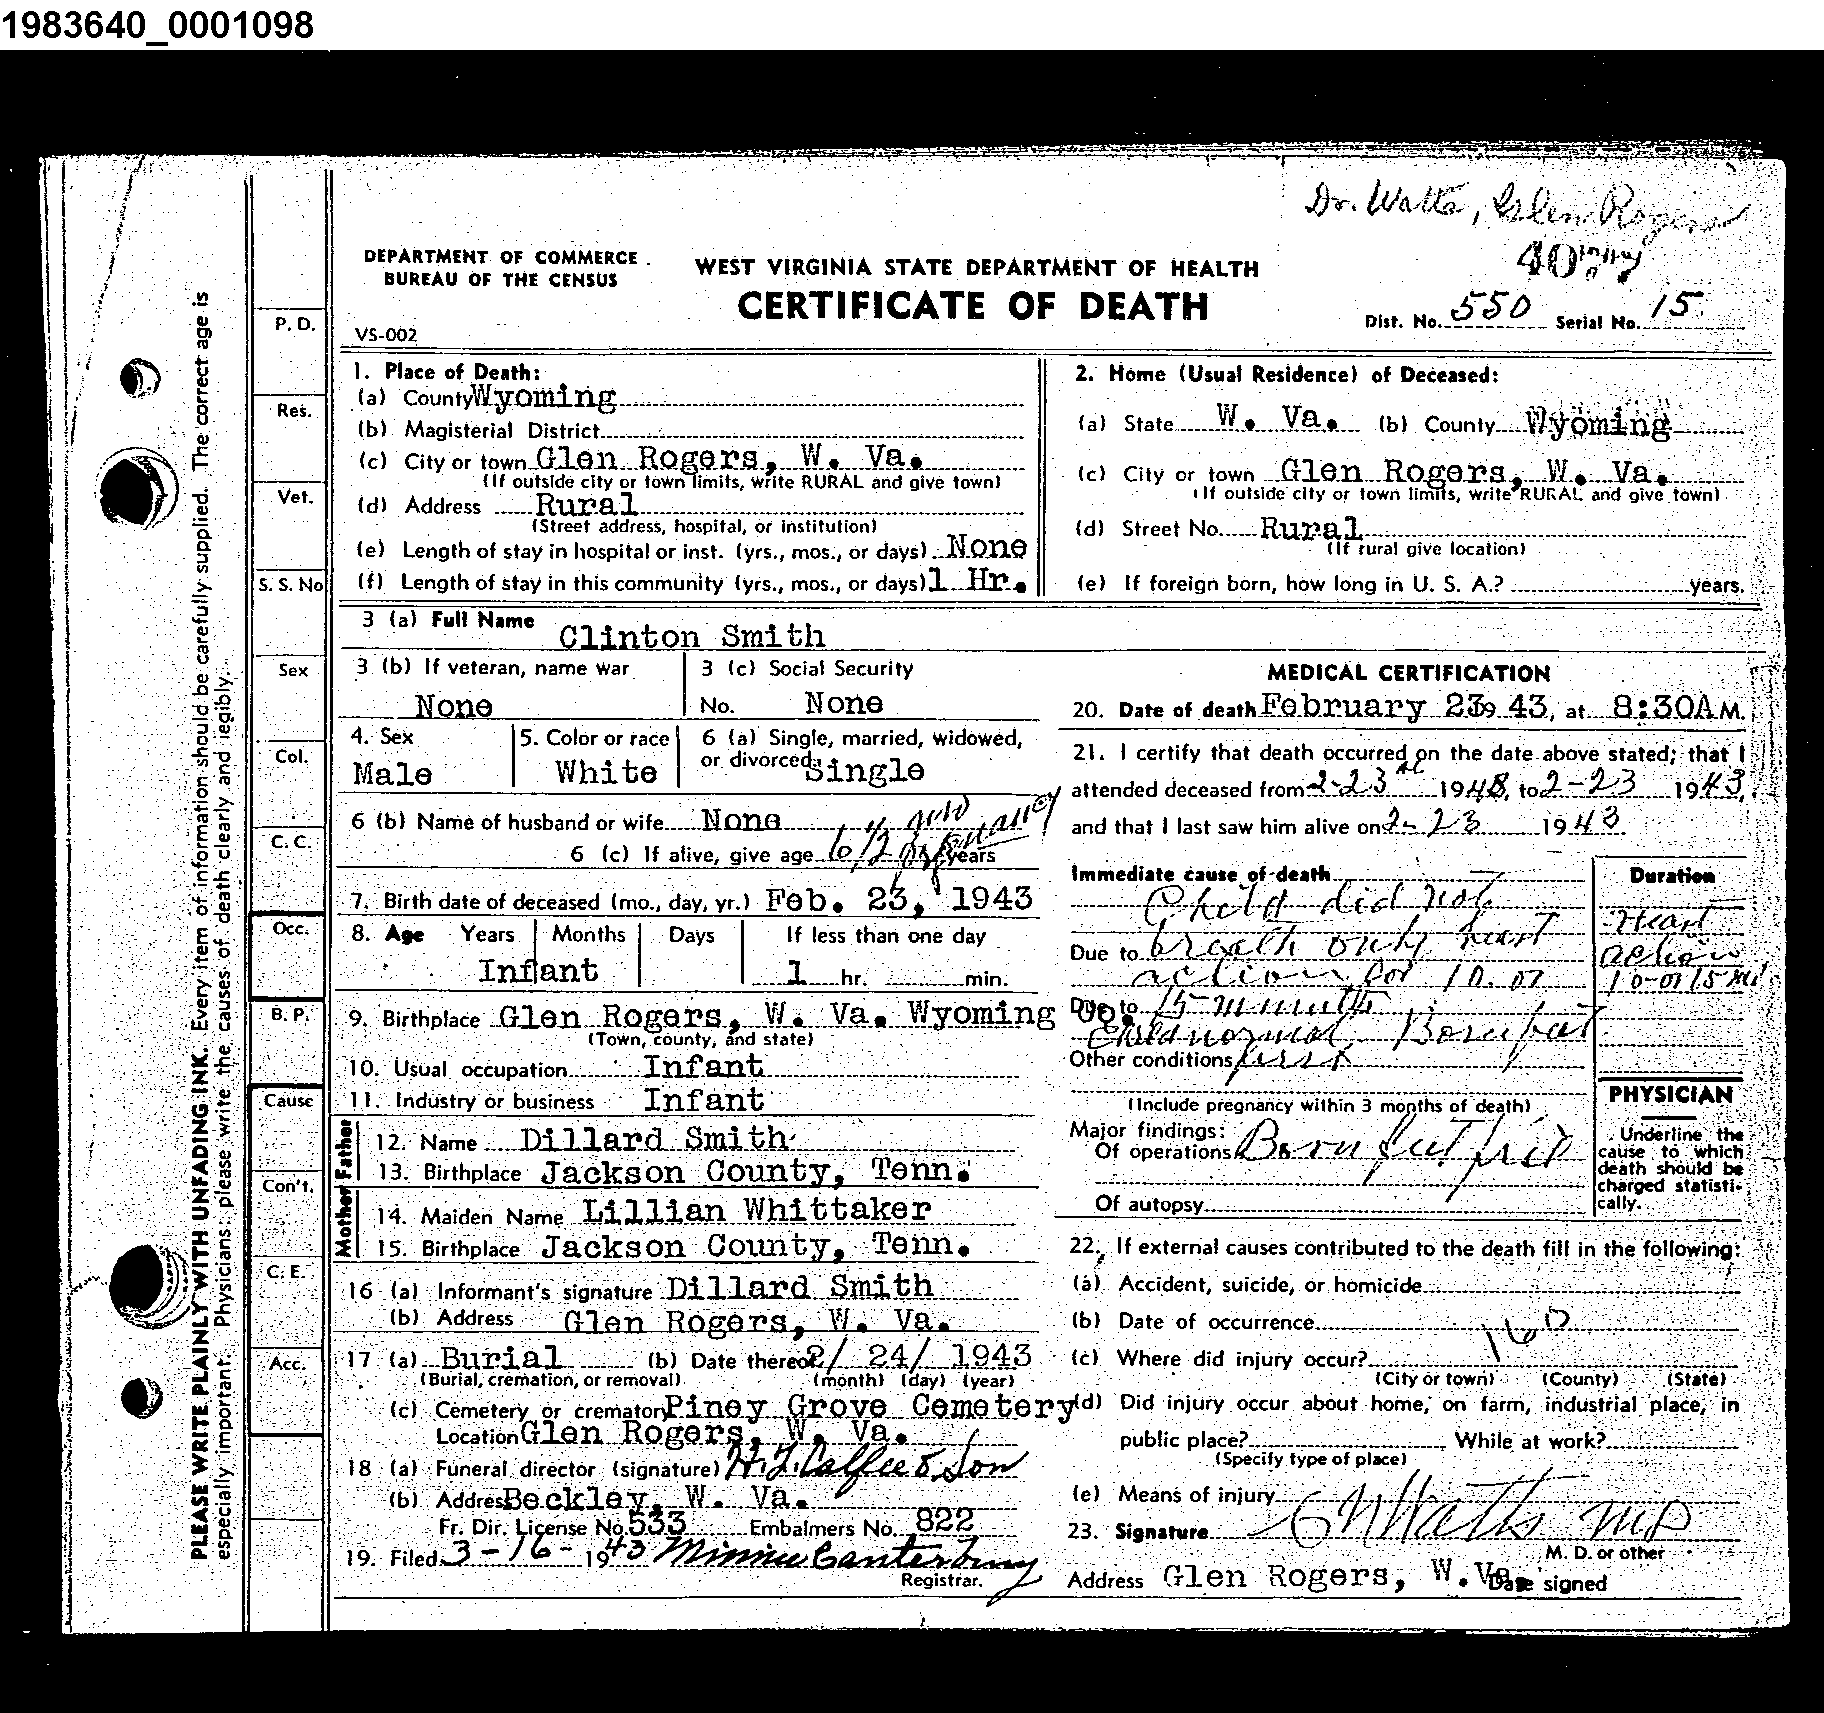 1983640_0001098
Dr. Watts, Glen Rogers
DEPARTMENT OF COMMERCE
BUREAU OF THE CENSUS
WEST VIRGINIA STATE DEPARTMENT OF HEALTH
CERTIFICATE OF DEATH
VS-002
Dist. No. 550 Serial No. 15
PLEASE WRITE PLAINLY WITH UNFADING INK. Every item of information should be carefully supplied. The correct age is
especially important. Physicians: please write the causes of death clearly and legibly.
P. D.
Res.
Vet.
S. S. No
Sex
Col.
C. C.
Occ.
B. P.
Cause
Con't.
C. E.
Acc.
1. Place of Death:
(a) County Wyoming
(b) Magisterial District
(c) City or town Glen Rogers, W. Va.
(If outside city or town limits, write RURAL and give town)
(d) Address Rural
(Street address, hospital, or institution)
(e) Length of stay in hospital or inst. (yrs., mos., or days) None
(f) Length of stay in this community (yrs., mos., or days) 1 Hr.
2. Home (Usual Residence) of Deceased:
(a) State W. Va. (b) County Wyoming
(c) City or town Glen Rogers, W. Va.
(If outside city or town limits, write RURAL and give town)
(d) Street No. Rural
(If rural give location)
(e) If foreign born, how long in U. S. A.? years.
3 (a) Full Name Clinton Smith
3 (b) If veteran, name war None
3 (c) Social Security No. None
4. Sex Male
5. Color or race White
6 (a) Single, married, widowed, or divorced Single
6 (b) Name of husband or wife None
6 (c) If alive, give age years
6 1/2 mo pregnancy
7. Birth date of deceased (mo., day, yr.) Feb. 23, 1943
8. Age Years Months Days If less than one day
Infant 1 hr. min.
9. Birthplace Glen Rogers, W. Va. Wyoming Co.
(Town, county, and state)
10. Usual occupation Infant
11. Industry or business Infant
Father
12. Name Dillard Smith
13. Birthplace Jackson County, Tenn.
Mother
14. Maiden Name Lillian Whittaker
15. Birthplace Jackson County, Tenn.
16 (a) Informant's signature Dillard Smith
(b) Address Glen Rogers, W. Va.
17 (a) Burial (b) Date thereof 2/ 24/ 1943
(Burial, cremation, or removal) (month) (day) (year)
(c) Cemetery or crematory Piney Grove Cemetery
Location Glen Rogers, W. Va.
18 (a) Funeral director (signature) H. F. Calfee & Son
(b) Address Beckley, W. Va.
Fr. Dir. License No. 533 Embalmers No. 822
19. Filed 3-16-1943 Minnie Canterbury
Registrar.
MEDICAL CERTIFICATION
20. Date of death February 23, 1943, at 8:30A M.
21. I certify that death occurred on the date above stated; that I
attended deceased from 2-23 1943, to 2-23 1943,
and that I last saw him alive on 2-23 1943
Immediate cause of death Duration
Child did not Heart
Due to breath only heart action
action for 10 or 10-or 15 mi
Due to 15 minutes
Child normal Born feet
Other conditions first
(Include pregnancy within 3 months of death)
PHYSICIAN
Underline the
cause to which
death should be
charged statisti-
cally.
Major findings:
Of operations Born feet first
Of autopsy
22. If external causes contributed to the death fill in the following:
(a) Accident, suicide, or homicide
(b) Date of occurrence
160
(c) Where did injury occur?
(City or town) (County) (State)
(d) Did injury occur about home, on farm, industrial place, in
public place? While at work?
(Specify type of place)
(e) Means of injury
23. Signature C N Watts MD
M. D. or other
Address Glen Rogers, W. Va. Date signed